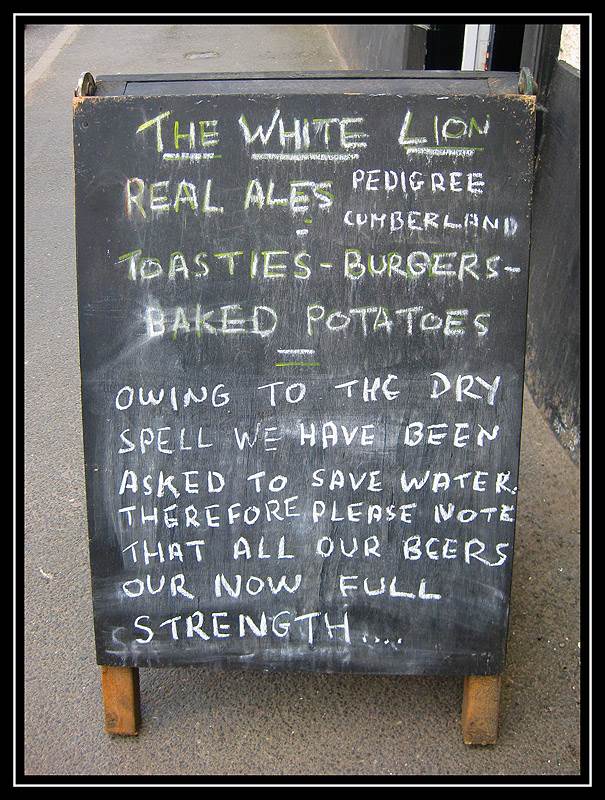 THE WHITE LION
REAL ALES PEDIGREE
: CUMBERLAND
TOASTIES - BURGERS -
BAKED POTATOES
OWING TO THE DRY
SPELL WE HAVE BEEN
ASKED TO SAVE WATER.
THEREFORE PLEASE NOTE
THAT ALL OUR BEERS
OUR NOW FULL
STRENGTH....